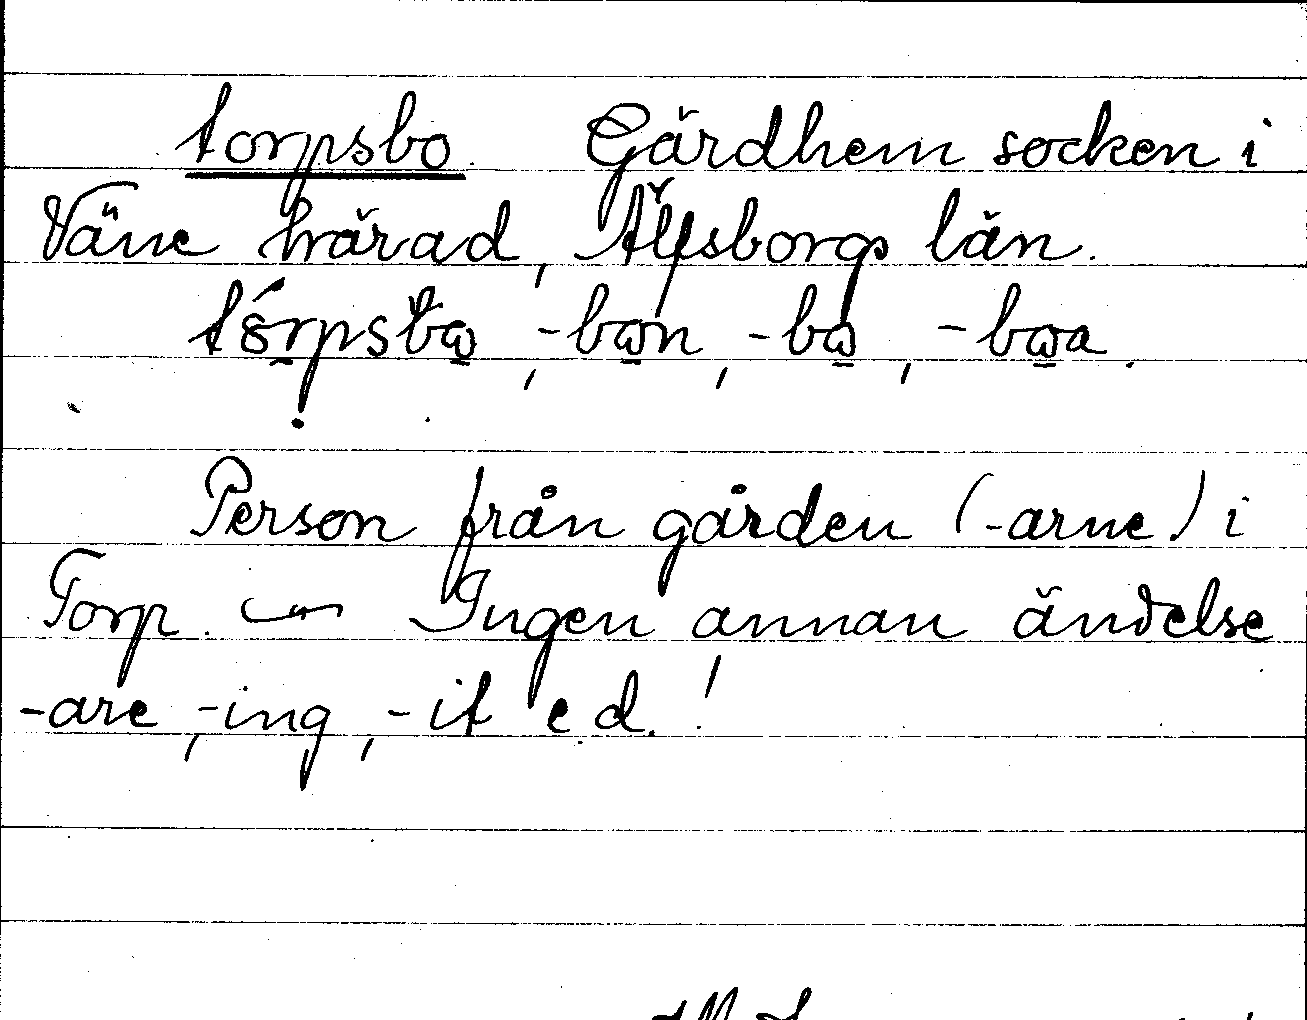 torpsbo. Gärdhem socken i
Väne härad, Älfsborgs län.
-bωn, -bω, -bωa.
Person från gården (-arne) i
Torp. — Ingen annan ändelse
-are, -ing, -it e.d.!